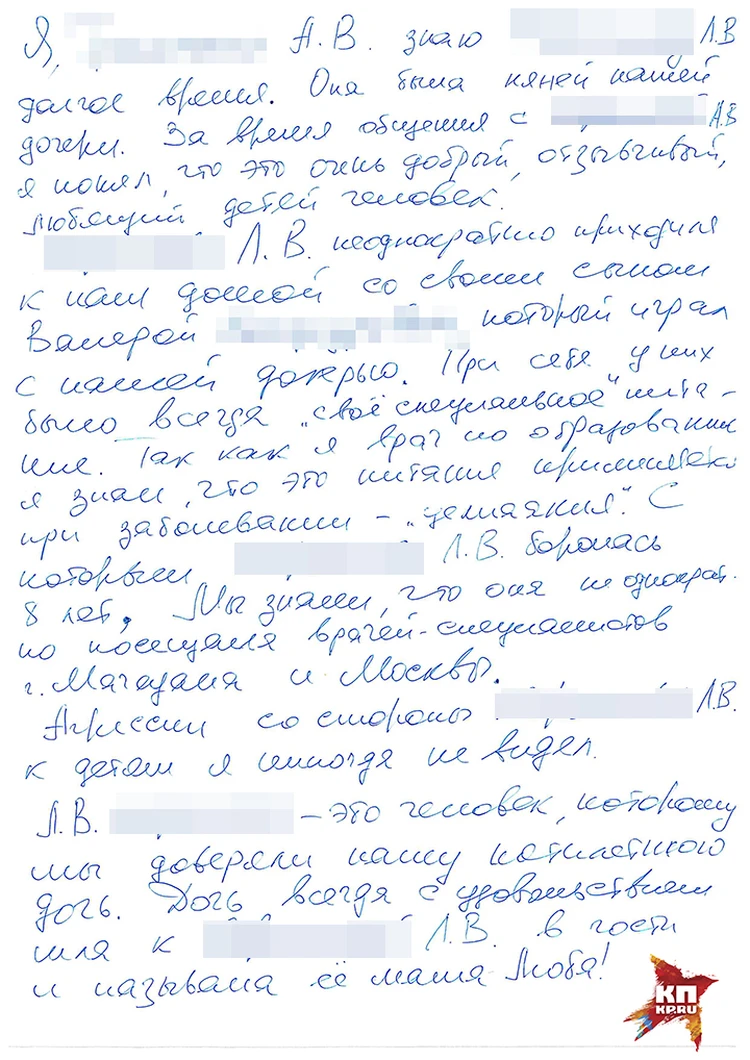 Я, А.В. знаю Л.В
долгое время. Она была няней нашей
дочери. За время общения с Л.В
я понял, что это очень добрый, отзывчивый,
любящий детей человек.
Л.В. неоднократно приходила
к нам домой со своим сыном
Валерой который играл
с нашей дочерью. При себе у них
было всегда "своё специальное" пита-
ние. Так как я врач по образованию
я знаю, что это питание применяется
при заболевании - "целиакия". С
которым Л.В. боролась
8 лет. Мы знаем, что она неоднократ-
но посещала врачей-специалистов
г. Магадана и Москвы.
Агрессии со стороны Л.В.
к детям я никогда не видел.
Л.В. - это человек, которому
мы доверяли нашу пятилетнюю
дочь. Дочь всегда с удовольствием
шла к Л.В. в гости
и называла её мама Люба!
КП
KP.RU